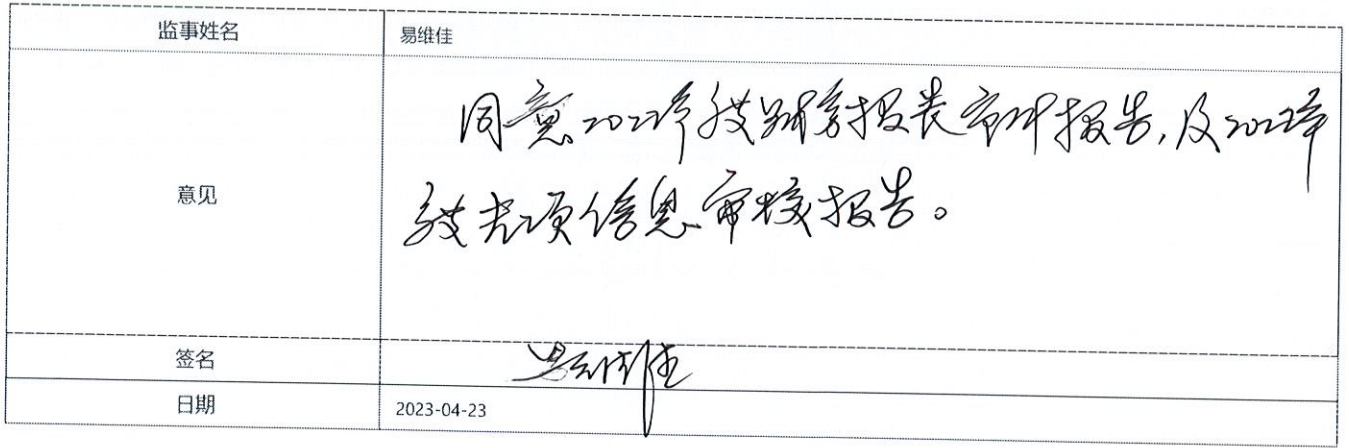 监事姓名 易维佳
意见
同意2022年度财务报表审计报告,及2022年
度专项信息审核报告。
签名 易维佳
日期 2023-04-23